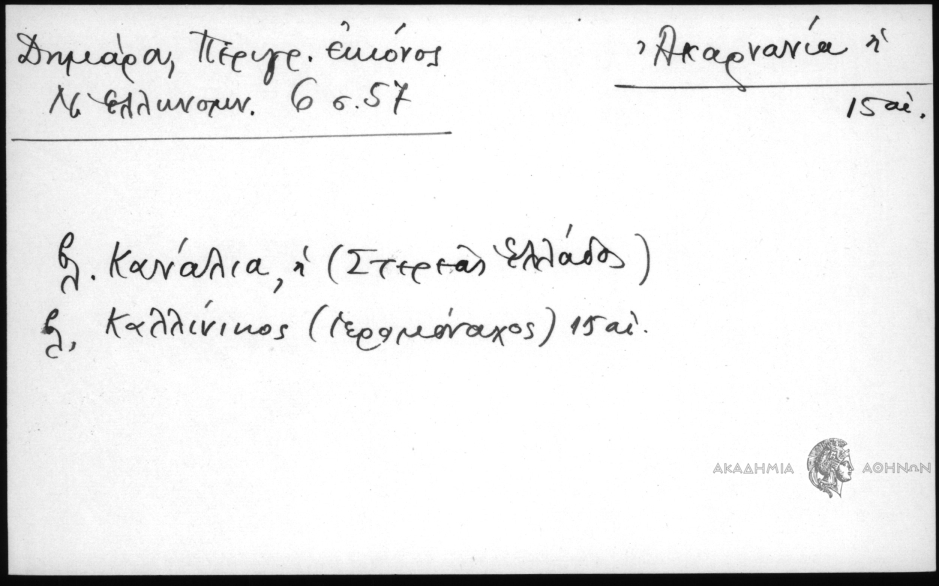 Δημάρα, Περιγρ. εἰκόνος
Ν. Ἑλληνομν. 6 σ. 57
Ἀκαρνανία ἡ
15 αἰ.
βλ. Κανάλια, ἡ (Στερεᾶς Ἑλλάδος)
βλ. Καλλίνικος (ἱερομόναχος) 15 αἰ.
ΑΚΑΔΗΜΙΑ ΑΘΗΝΩΝ